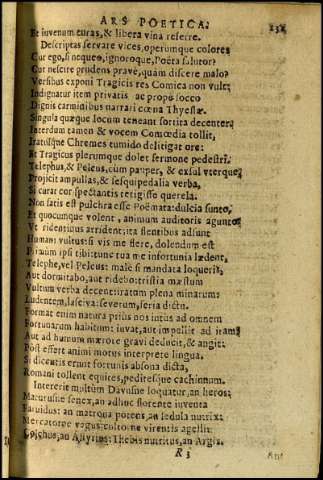 ARS POETICA. 131
Et iuvenum curas, & libera vina referre.
Descriptas servare vices, operumque colores
Cur ego, si nequeo, ignoroque, Poëta salutor?
Cur nescire prudens prave, quàm discere malo?
Versibus exponi Tragicis res Comica non vult;
Indignatur item privatis ac prope socco
Dignis carminibus narrari cœna Thyestæ.
Singula quæque locum teneant sortita decenter.
Interdum tamen & vocem Comœdia tollit,
Iratusque Chremes tumido delitigat ore:
Et Tragicus plerumque dolet sermone pedestri.
Telephus, & Peleus, cùm pauper, & exsul uterque,
Projicit ampullas, & sesquipedalia verba,
Si curat cor spectantis tetigisse querela.
Non satis est pulchra esse Poëmata: dulcia sunto,
Et quocumque volent, animum auditoris agunto.
Vt ridentibus arrident, ita flentibus adsunt
Humani vultus: si vis me flere, dolendum est
Primùm ipsi tibi: tunc tua me infortunia lædent,
Telephe, vel Peleus: malè si mandata loqueris,
Aut dormitabo, aut ridebo: tristia mæstum
Vultum verba decent: iratum plena minarum:
Ludentem, lasciva: severum, seria dictu.
Format enim natura priùs nos intus ad omnem
Fortunarum habitum: iuvat, aut impellit ad iram;
Aut ad humum mærore gravi deducit, & angit:
Pòst effert animi motus interprete lingua.
Si dicentis erunt fortunis absona dicta,
Romani tollent equites, peditesque cachinnum.
Intererit multùm Davusne loquatur, an heros;
Maturusne senex, an adhuc florente iuventa
Fervidus: an matrona potens, an sedula nutrix:
Mercatorne vagus: cultorne virentis agelli:
Colchus, an Assyrius: Thebis nutritus, an Argis.
R 3
Aut